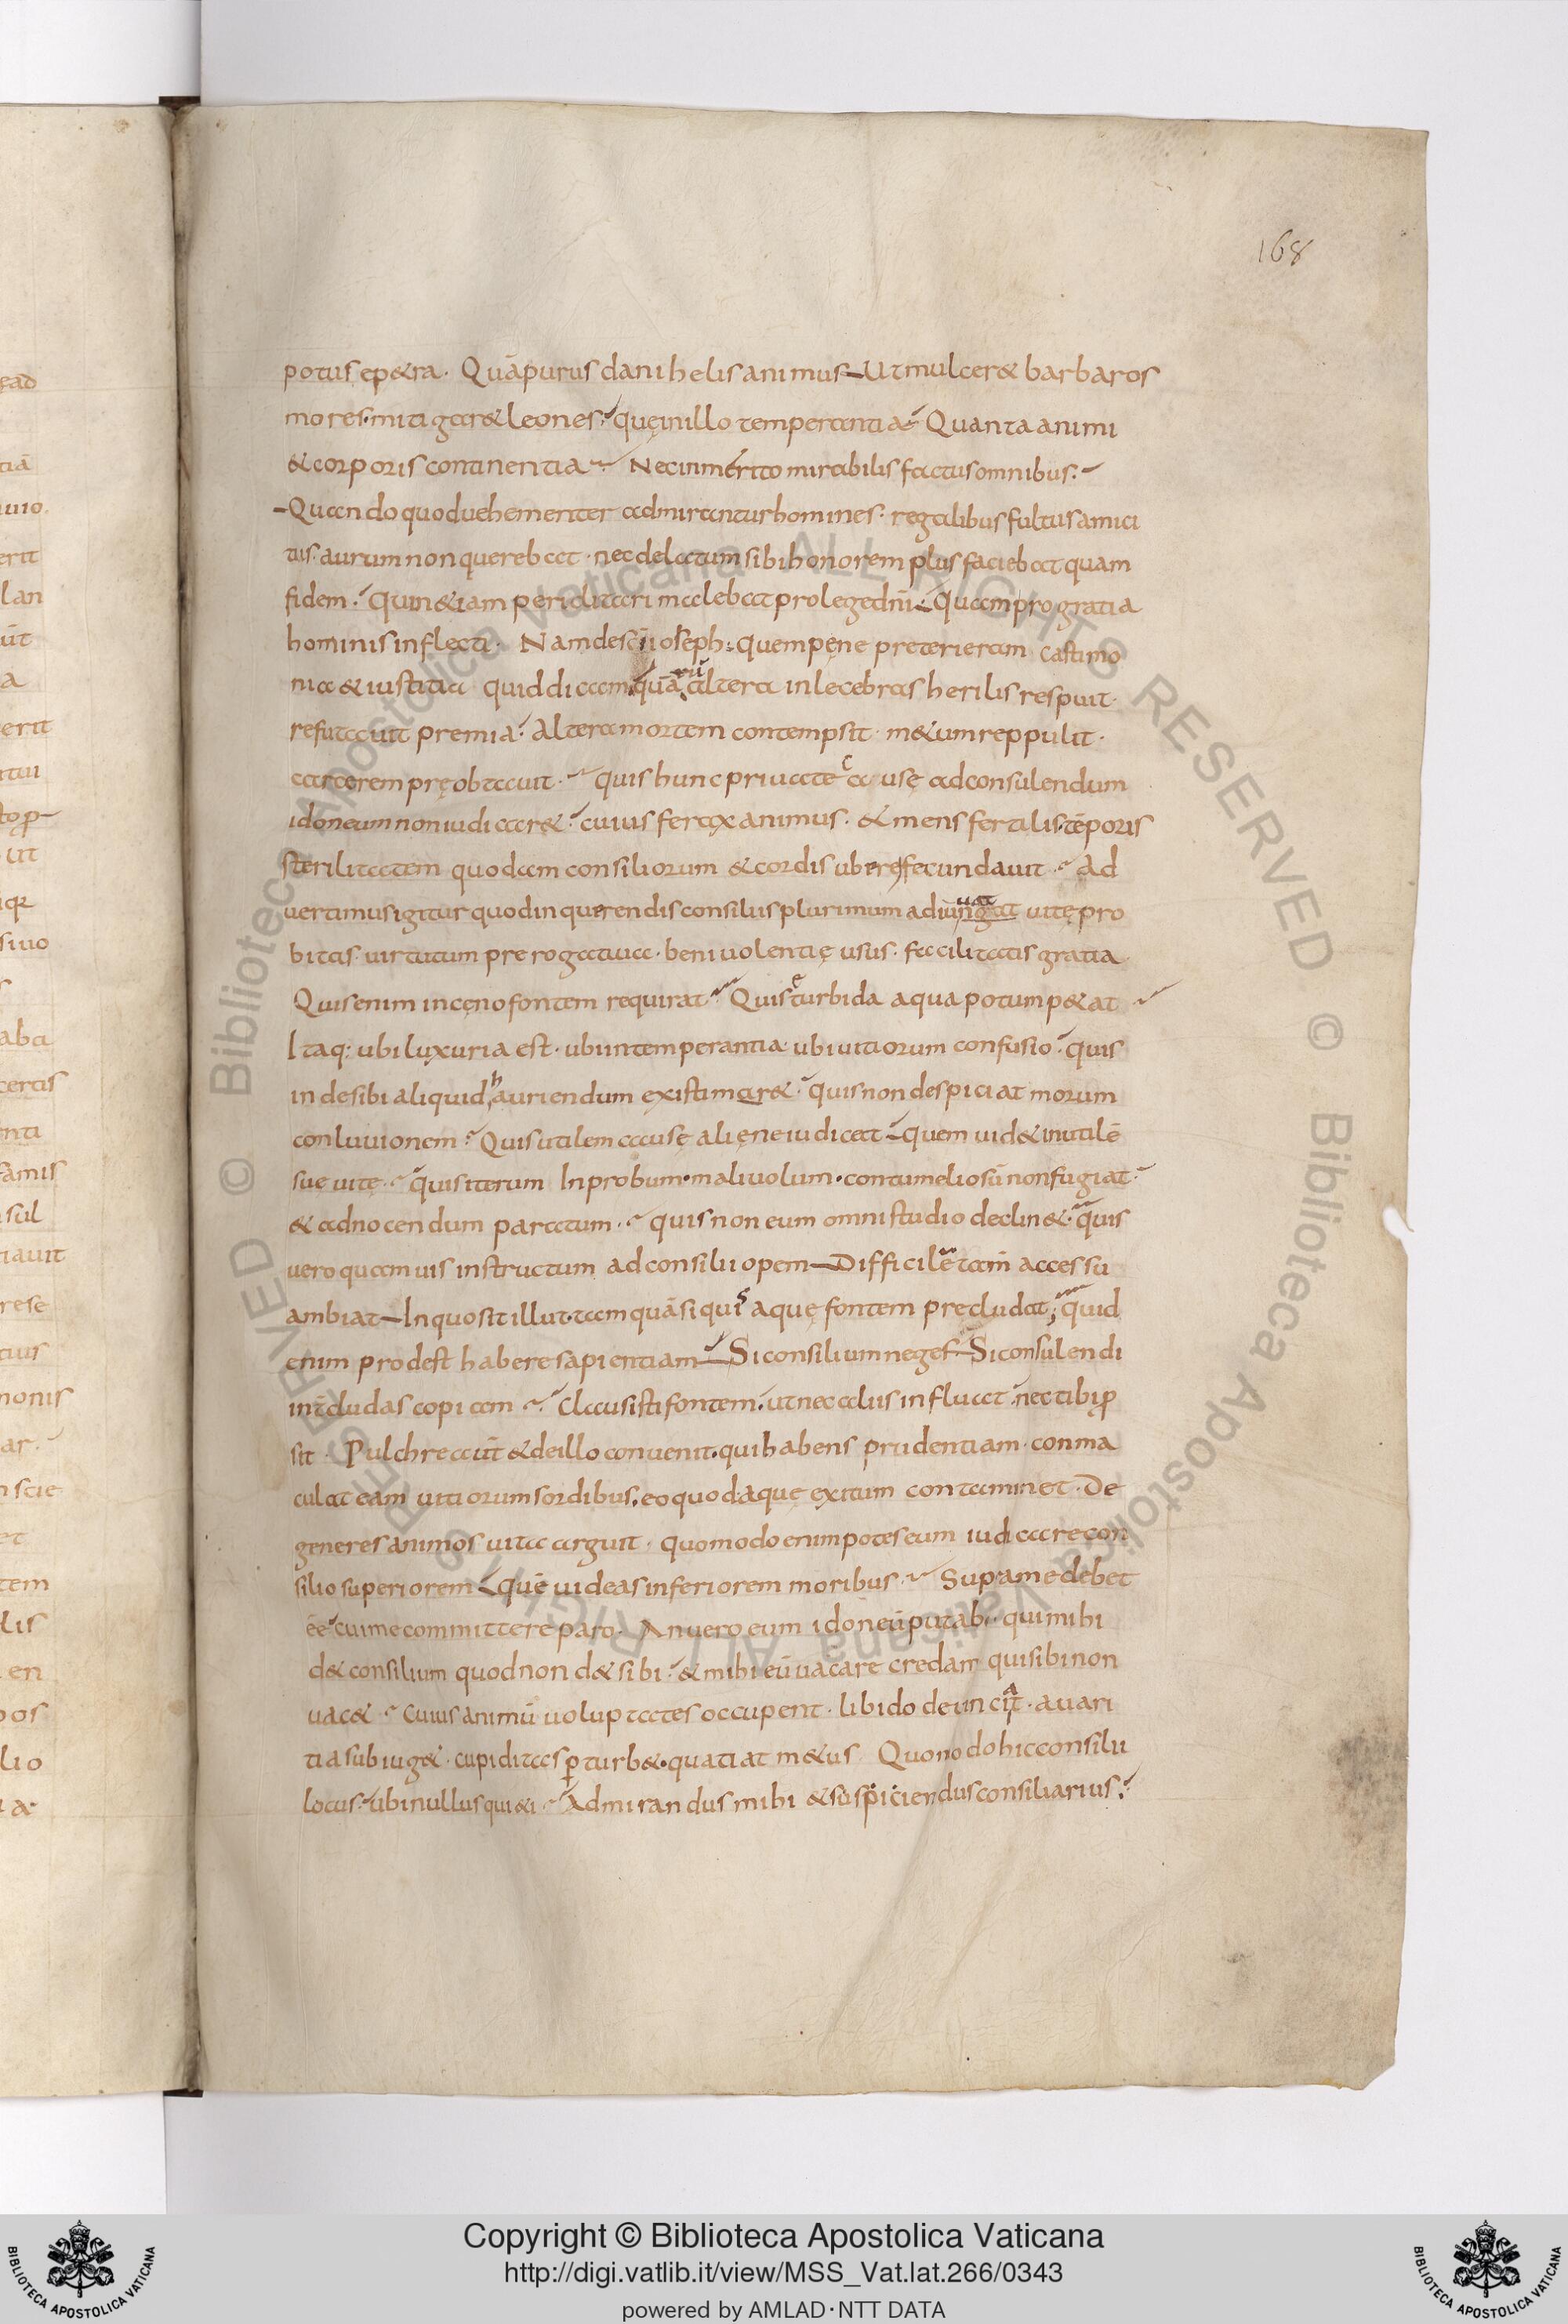 168
potus ep&ra. Quā purus danihelis animus Ut mulcer& barbaros
mores. mitigar& leones? quę in illo temperantia? Quanta animi
& corporis continentia? Nec inmerito mirabilis factus omnibus.
Quando quod uehementer admirantur homines. regalibus fultus amici
tiis. aurum non querebat. nec delatum sibi honorem plus faciebat quam
fidem? Quin &iam periclitari malebat pro lege dn̄i Quam pro gratia
hominis inflecti. Nam de sc̄i ioseph. quem pęne preterieram castimo
nia & iustitia quid dicam quā rū altera inlecebras herilis respuit.
refutauit premia? Altera mortem contempsit. m&um reppulit.
carcerem pręobtauit. quis hunc priuate cause ad consulendum
idoneum non iudicar&? cuius ferax animus. & mens fertilis. tēporis
sterilitatem quodam consiliorum & cordis ubere fecundauit. Ad
uertimus igitur quod in querendis consiliis plurimum adiungat uat uitę pro
bitas. uirtutum prerogatiua. beniuolentię usus. facilitatis gratia.
Quis enim in cęno fontem requirat? Quis e turbida aqua potum p&at
Itaq: ubi luxuria est. ubi intemperantia. ubi uitiorum confusio. quis
inde sibi aliquid hauriendum existimar&. quis non despiciat morum
conluuionem? Quis utilem causę alienę iudicet quem uid& inutilē
suę uitę. quis iterum Inprobum. maliuolum. contumeliosū non fugiat.
& ad nocendum paratum. quis non eum omni studio declin&. quis
uero quamuis instructum ad consilii opem Difficile tam̄ accessū
ambiat In quo sit illut. tamquā si quis aquę fontem precludat; quid
enim prodest habere sapientiam Si consilium neges Si consulendi
int̄cludas copiam. Clausisti fontem. ut nec aliis influat. nec tibi p
sit. Pulchre aūt & de illo conuenit. qui habens prudentiam. conma
culat eam uitiorum sordibus. eo quod aquę exitum contaminet. De
generes animos uita arguit. quomodo enim potes eum iudicare con
silio superiorem quē uideas inferiorem moribus. Supra me debet
ēē cui me committere paro. An uero eum idoneū putabo. qui mihi
d& consilium quod non d& sibi? & mihi eū uacare credam qui sibi non
uac&. Cuius animū uoluptates occupent. libido deuinciat. auari
tia subiug&. cupiditas p̱turb&. quatiat m&us Quomodo hic consilii
locus. ubi nullus qui&i. Admirandus mihi & suspiciendus consiliarius?
ALL RIGHTS RESERVED © Biblioteca Apostolica Vaticana
Copyright © Biblioteca Apostolica Vaticana
http://digi.vatlib.it/view/MSS_Vat.lat.266/0343
powered by AMLAD·NTT DATA
BIBLIOTECA APOSTOLICA VATICANA
BIBLIOTECA APOSTOLICA VATICANA